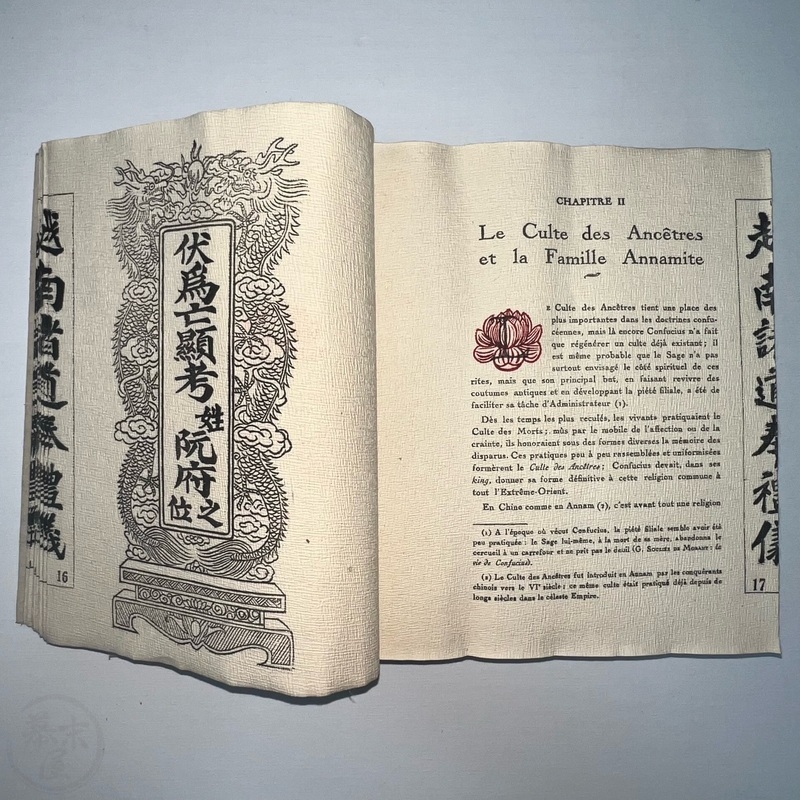 越南諸道孝禮儀
16
伏爲亡顯考姓阮府之位
CHAPITRE II
Le Culte des Ancêtres
et la Famille Annamite
LE Culte des Ancêtres tient une place des
plus importantes dans les doctrines confu-
céennes, mais là encore Confucius n'a fait
que régénérer un culte déjà existant; il
est même probable que le Sage n'a pas
surtout envisagé le côté spirituel de ces
rites, mais que son principal bnt, en faisant revivre des
coutumes antiques et en développant la piété filiale, a été de
faciliter sa tâche d'Administrateur (1).
Dès les temps les plus reculés, les vivants pratiquaient le
Culte des Morts; mûs par le mobile de l'affection ou de la
crainte, ils honoraient sous des formes diverses la mémoire des
disparus. Ces pratiques peu à peu rassemblées et uniformisées
formèrent le Culte des Ancêtres; Confucius devait, dans ses
king, donner sa forme définitive à cette religion commune à
tout l'Extrême-Orient.
En Chine comme en Annam (2), c'est avant tout une religion
(1) A l'époque où vécut Confucius, la piété filiale semble avoir été
peu pratiquée: le Sage lui-même, à la mort de sa mère, abandonna le
cercueil à un carrefour et ne prit pas le deuil (G. SOULIÉ DE MORANT: la
vie de Confucius).
(2) Le Culte des Ancêtres fut introduit en Annam par les conquérants
chinois vers le VIe siècle; ce même culte était pratiqué déjà depuis de
longs siècles dans le céleste Empire.
越南諸道孝禮儀
17
幕末屋